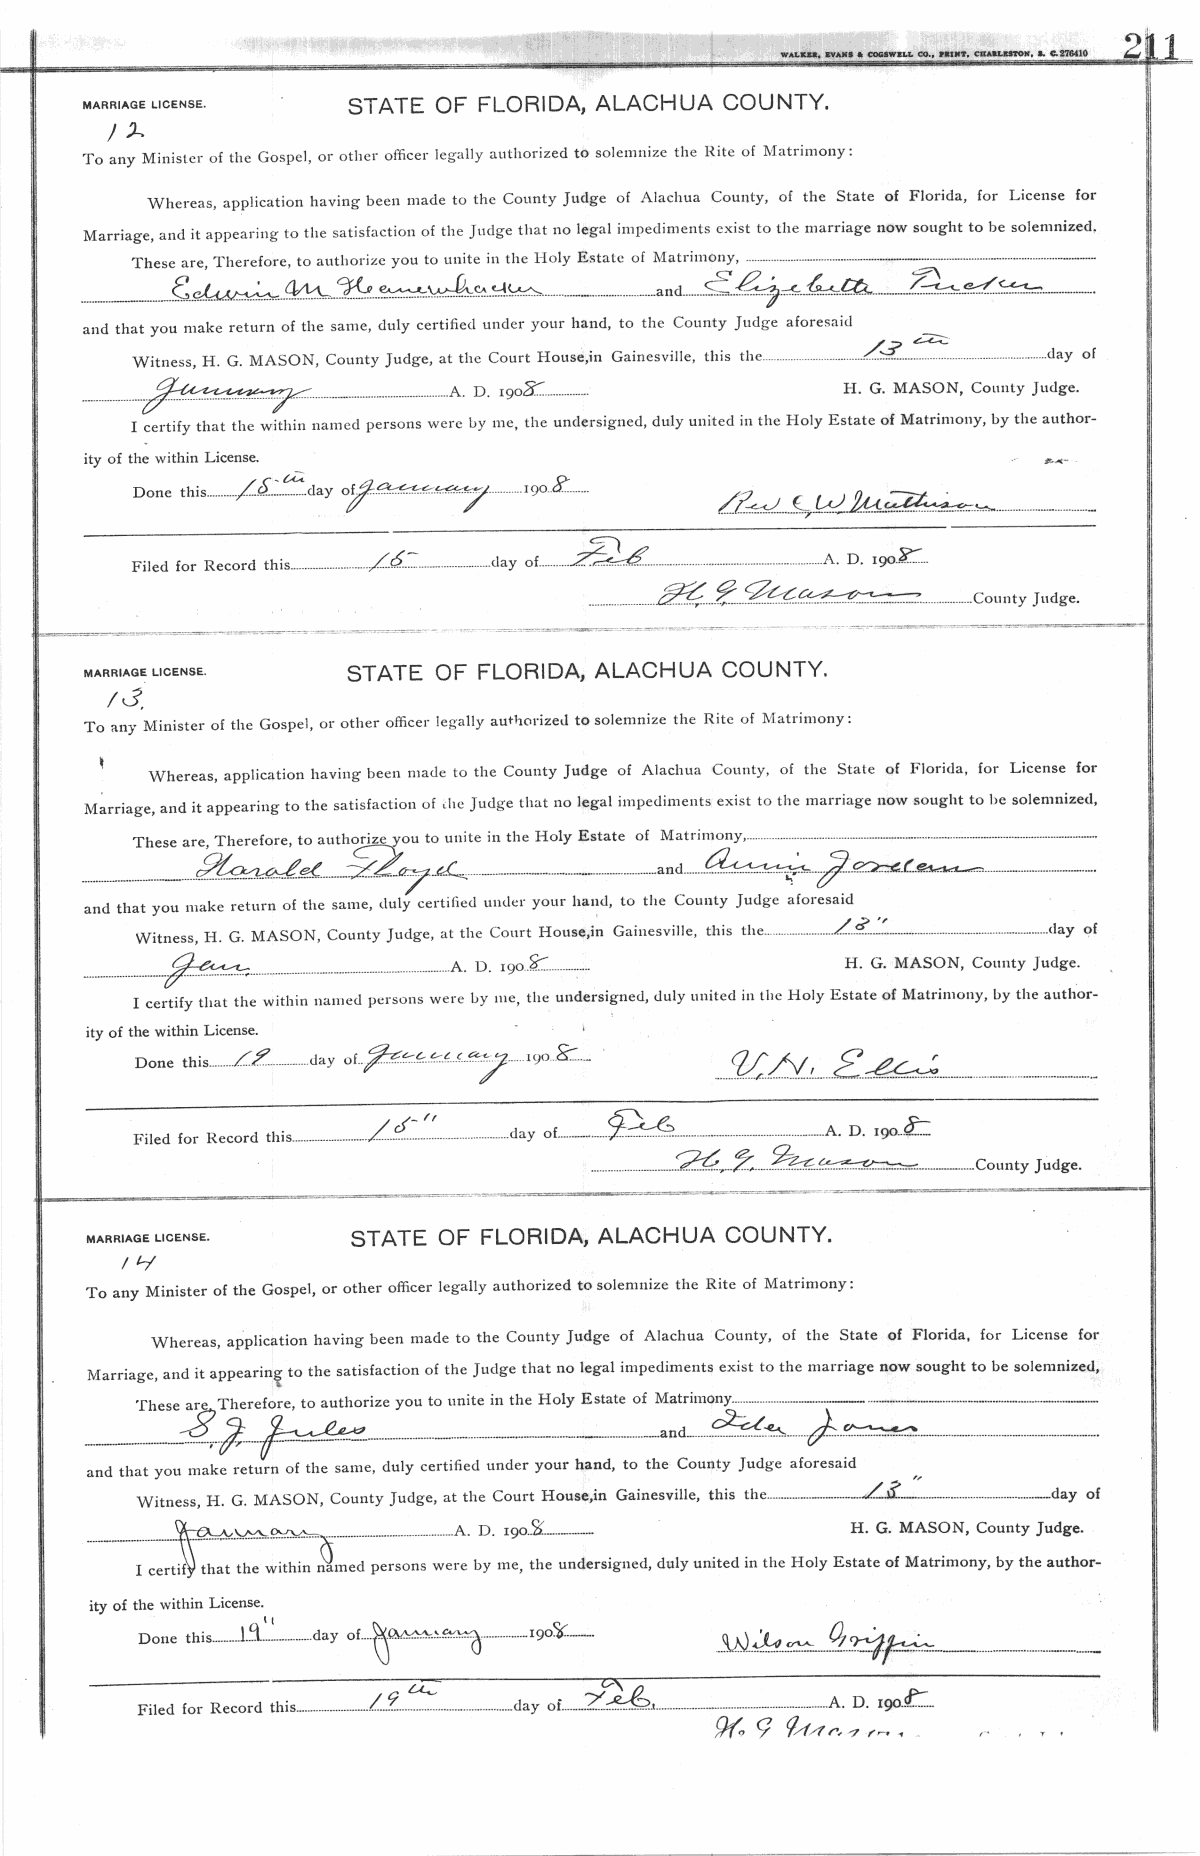 WALKER, EVANS & COGSWELL CO., PRINT, CHARLESTON, S. C. 276410 211
MARRIAGE LICENSE. STATE OF FLORIDA, ALACHUA COUNTY.
12
To any Minister of the Gospel, or other officer legally authorized to solemnize the Rite of Matrimony:
Whereas, application having been made to the County Judge of Alachua County, of the State of Florida, for License for
Marriage, and it appearing to the satisfaction of the Judge that no legal impediments exist to the marriage now sought to be solemnized,
These are, Therefore, to authorize you to unite in the Holy Estate of Matrimony,
Edwin M and Elizebeth Tucker
and that you make return of the same, duly certified under your hand, to the County Judge aforesaid
Witness, H. G. MASON, County Judge, at the Court House, in Gainesville, this the 13th day of
January A. D. 1908 H. G. MASON, County Judge.
I certify that the within named persons were by me, the undersigned, duly united in the Holy Estate of Matrimony, by the author-
ity of the within License.
Done this 15th day of January 1908 Rev C. W. Mathison
Filed for Record this 15 day of Feb A. D. 1908
H. G. Mason County Judge.
MARRIAGE LICENSE. STATE OF FLORIDA, ALACHUA COUNTY.
13.
To any Minister of the Gospel, or other officer legally authorized to solemnize the Rite of Matrimony:
Whereas, application having been made to the County Judge of Alachua County, of the State of Florida, for License for
Marriage, and it appearing to the satisfaction of the Judge that no legal impediments exist to the marriage now sought to be solemnized,
These are, Therefore, to authorize you to unite in the Holy Estate of Matrimony,
Harold Floyd and Annie Jordan
and that you make return of the same, duly certified under your hand, to the County Judge aforesaid
Witness, H. G. MASON, County Judge, at the Court House, in Gainesville, this the 13" day of
Jan. A. D. 1908 H. G. MASON, County Judge.
I certify that the within named persons were by me, the undersigned, duly united in the Holy Estate of Matrimony, by the author-
ity of the within License.
Done this 19 day of January 1908 V. H. Ellis
Filed for Record this 15" day of Feb A. D. 1908
H. G. Mason County Judge.
MARRIAGE LICENSE. STATE OF FLORIDA, ALACHUA COUNTY.
14
To any Minister of the Gospel, or other officer legally authorized to solemnize the Rite of Matrimony:
Whereas, application having been made to the County Judge of Alachua County, of the State of Florida, for License for
Marriage, and it appearing to the satisfaction of the Judge that no legal impediments exist to the marriage now sought to be solemnized,
These are, Therefore, to authorize you to unite in the Holy Estate of Matrimony
S. J. Jules and Ider Jones
and that you make return of the same, duly certified under your hand, to the County Judge aforesaid
Witness, H. G. MASON, County Judge, at the Court House, in Gainesville, this the 13" day of
January A. D. 1908 H. G. MASON, County Judge.
I certify that the within named persons were by me, the undersigned, duly united in the Holy Estate of Matrimony, by the author-
ity of the within License.
Done this 19" day of January 1908 Wilson Griffin
Filed for Record this 19th day of Feb. A. D. 1908
H. G Mason